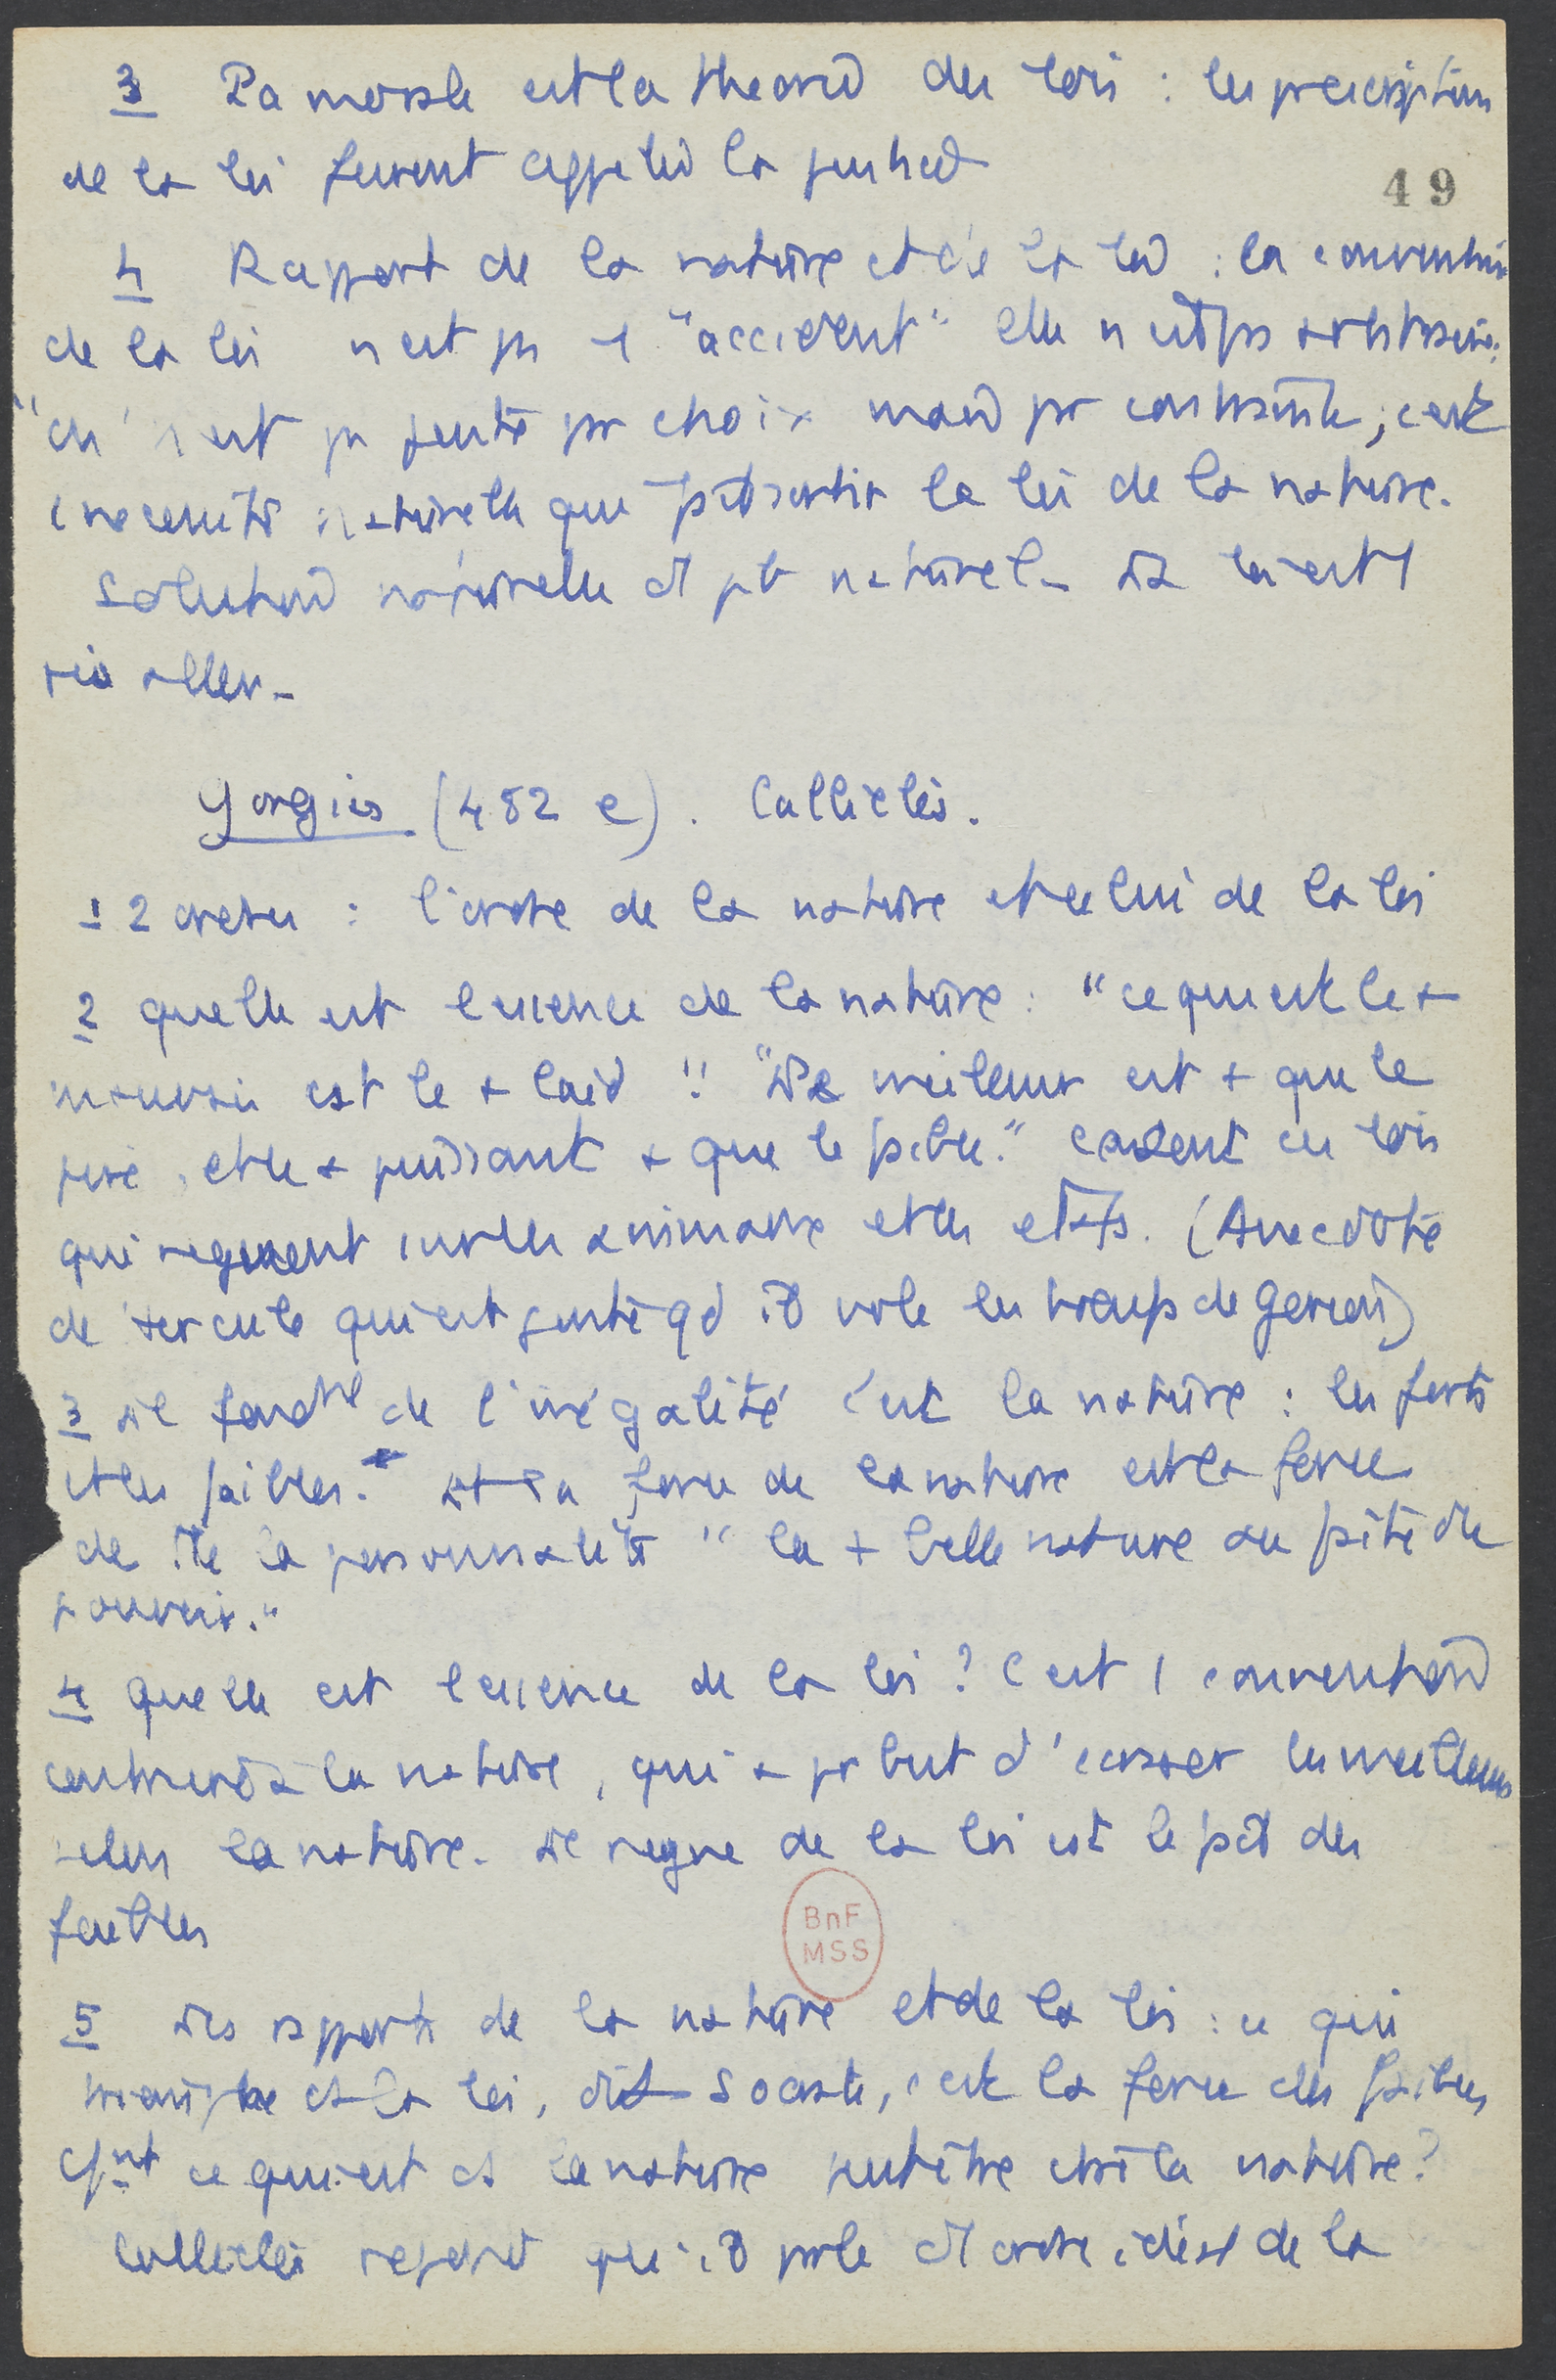 3 La morale est la théorie des lois : les prescriptions
de la loi furent appelées la justice
49
4 Rapport de la nature et de la loi : la convention
de la loi n'est pas 1 "accident" elle n'est pas arbitraire.
"on n'est pas juste par choix mais par contrainte, c'est
1 nécessité naturelle qui fait sortir la loi de la nature.
Solution naturelle d'1 pb naturel. La loi est 1
Gorgias (482 e). Calliclès.
1 2 ordres : l'ordre de la nature et celui de la loi
2 quelle est l'essence de la nature : "ce qui est le +
mauvais est le + laid" "Le meilleur est + que le
pire, et le + puissant + que le faible." ce sont ces lois
qui règnent sur les animaux et les états. (Anecdote
de Hercule qui est juste qd il vole les troup de Gerion)
3 Le fondt de l'inégalité c'est la nature : les forts
et les faibles. Et la force de la nature est la force
de tte la personnalité "la + belle nature au faîte du
pouvoir."
4 Quelle est l'essence de la loi ? C'est 1 convention
contraire à la nature, qui a pr but d'écraser les meilleurs
selon la nature. Le règne de la loi est le fait des
faibles
BnF
MSS
5 Les rapports de la nature et de la loi : ce qui
triomphe ds la loi, dit Socrate, c'est la force des faibles
Cmt ce qui est ds la nature peut être ctre la nature ?
Calliclès répond qu'il parle d'1 ordre idéal de la